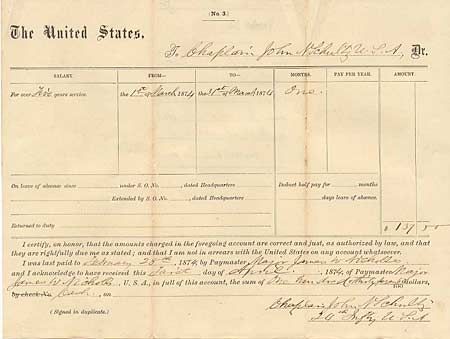 (No. 3.)
The United States,
To Chaplain John N Schultz U.S.A, Dr.
SALARY. FROM— TO— MONTHS. PAY PER YEAR. AMOUNT.
For over Five years service. the 1st of March 1874 the 31st of March 1874 One.
On leave of absence since under S. O. No. , dated Headquarters Deduct half pay for months
Extended by S. O. No. , dated Headquarters days leave of absence.
Returned to duty
$ 137 50
I certify, on honor, that the amounts charged in the foregoing account are correct and just, as authorized by law, and that
they are rightfully due me as stated; and that I am not in arrears with the United States on any account whatsoever.
I was last paid to February 28th, 1874, by Paymaster, Major James W Nicholls
and I acknowledge to have received this first day of April, 1874, of Paymaster Major
James W Nicholls, U. S. A., in full of this account, the sum of One Hundred thirty seven dollars,
by check No. Cash, on
Chaplain John N Schultz
24th Infty U.S.A
(Signed in duplicate.)